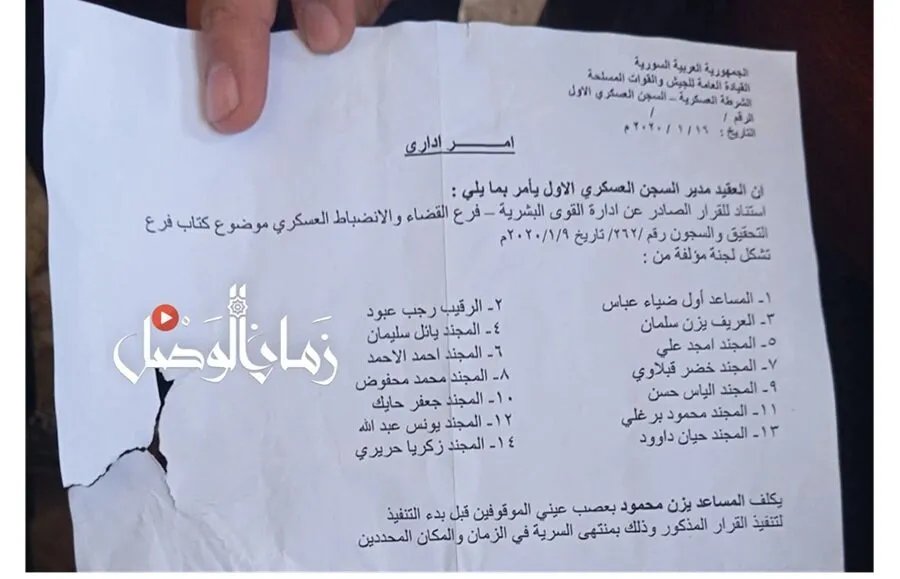 الجمهورية العربية السورية
القيادة العامة للجيش والقوات المسلحة
الشرطة العسكرية – السجن العسكري الاول
الرقم / /
التاريخ : ١٦ / ١ / ٢٠٢٠ م
امـــر اداري
ان العقيد مدير السجن العسكري الاول يأمر بما يلي :
استناد للقرار الصادر عن ادارة القوى البشرية – فرع القضاء والانضباط العسكري موضوع كتاب فرع
التحقيق والسجون رقم /٢٦٢/ تاريخ ٢٠٢٠/١/٩م
تشكل لجنة مؤلفة من :
١- المساعد أول ضياء عباس ٢- الرقيب رجب عبود
٣- العريف يزن سلمان ٤- المجند يائل سليمان
٥- المجند امجد علي ٦- المجند احمد الاحمد
٧- المجند خضر قبلاوي ٨- المجند محمد محفوض
٩- المجند الياس حسن ١٠- المجند جعفر حايك
١١- المجند محمود برغلي ١٢- المجند يونس عبد الله
١٣- المجند حيان داوود ١٤- المجند زكريا حريري
زمان الوصل
يكلف المساعد يزن محمود بعصب عيني الموقوفين قبل بدء التنفيذ
لتنفيذ القرار المذكور وذلك بمنتهى السرية في الزمان والمكان المحددين